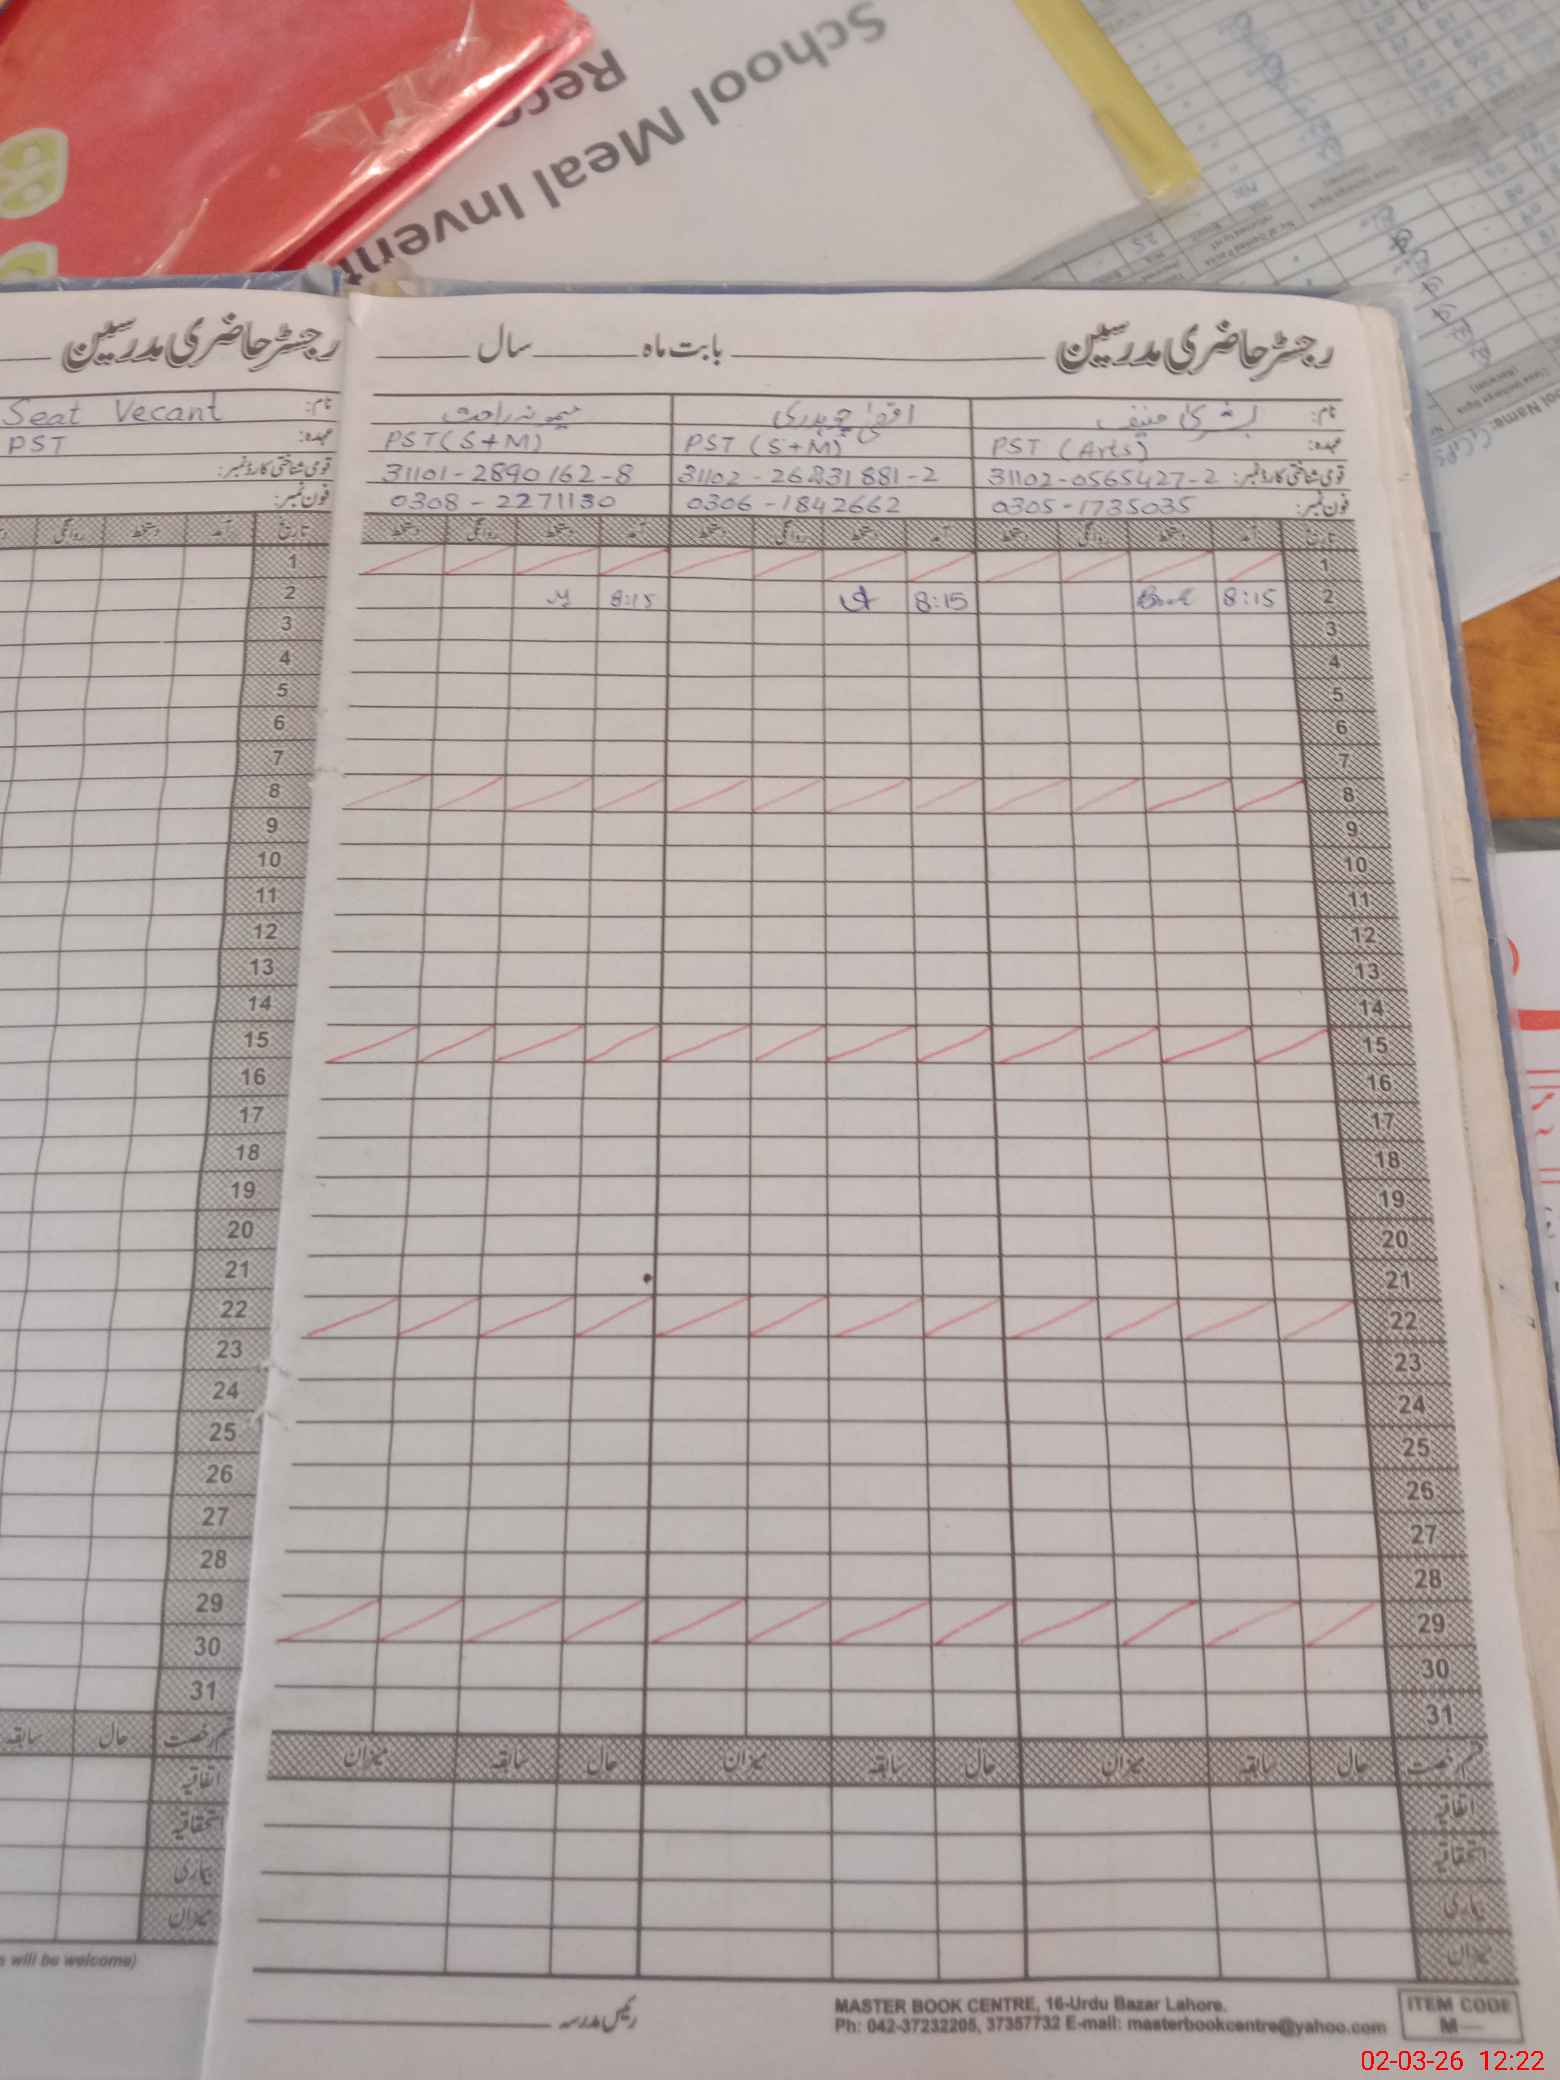 School Meal Invent
Reco
رجسٹر حاضری مدرسین
رجسٹر حاضری مدرسین ــــ بابت ماہ ــــ سال ــــ
نام: Seat Vecant
عہدہ: PST
قومی شناختی کارڈ نمبر:
فون نمبر:
نام: بشریٰ حنیف اقصیٰ چوہدری میمونہ راحت
عہدہ: PST (Arts) PST (S+M) PST (S+M)
قومی شناختی کارڈ نمبر: 31102-0565427-2 31101-2890162-8
فون نمبر: 0305-1735035 0306-1842662 0308-2271130
تاریخ آمد دستخط روانگی دستخط آمد دستخط روانگی دستخط آمد دستخط روانگی دستخط
تاریخ آمد دستخط روانگی
1 1
2 8:15 8:15 8:15 2
3 3
4 4
5 5
6 6
7 7
8 8
9 9
10 10
11 11
12 12
13 13
14 14
15 15
16 16
17 17
18 18
19 19
20 20
21 21
22 22
23 23
24 24
25 25
26 26
27 27
28 28
29 29
30 30
31 31
قسم رخصت حال سابقہ میزان حال سابقہ میزان حال سابقہ میزان
قسم رخصت حال سابقہ
اتفاقیہ
استحقاقیہ
بیماری
میزان
اتفاقیہ
استحقاقیہ
بیماری
میزان
s will be welcome)
رئیس مدرسہ
MASTER BOOK CENTRE, 16-Urdu Bazar Lahore.
Ph: 042-37232205, 37357732 E-mail: masterbookcentre@yahoo.com
ITEM CODE
M—
02-03-26 12:22